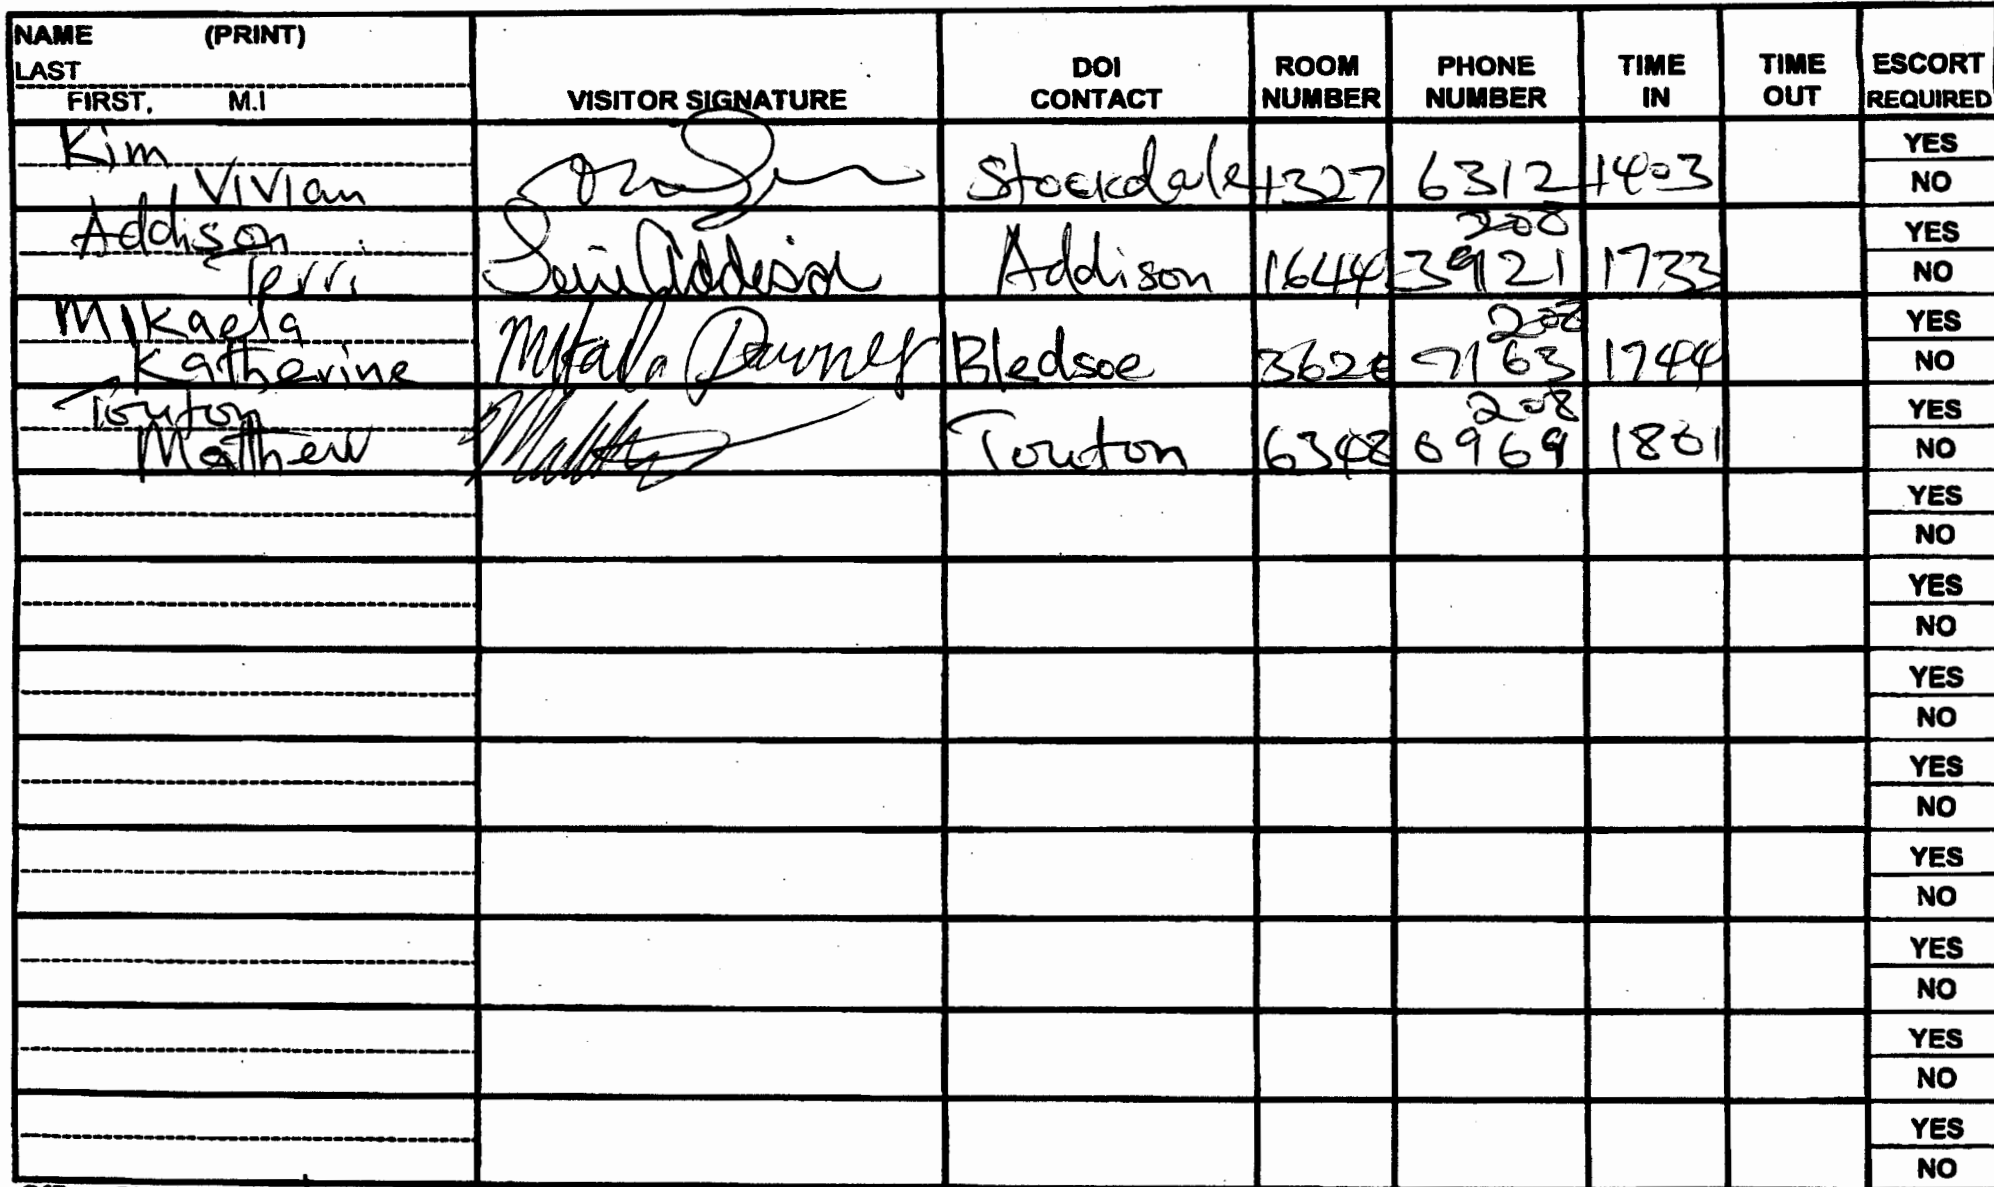 NAME (PRINT)
LAST
FIRST, M.I
VISITOR SIGNATURE
DOI
CONTACT
ROOM
NUMBER
PHONE
NUMBER
TIME
IN
TIME
OUT
ESCORT
REQUIRED
Kim
Vivian
Stockdale
1327
6312
1403
YES
NO
Addison
Terri
Terri Addison
Addison
1644
208
3921
1733
YES
NO
Mikaela
Katherine
Bledsoe
3620
208
7163
1744
YES
NO
Touton
Mathew
Touton
6348
208
0969
1801
YES
NO
YES
NO
YES
NO
YES
NO
YES
NO
YES
NO
YES
NO
YES
NO
YES
NO